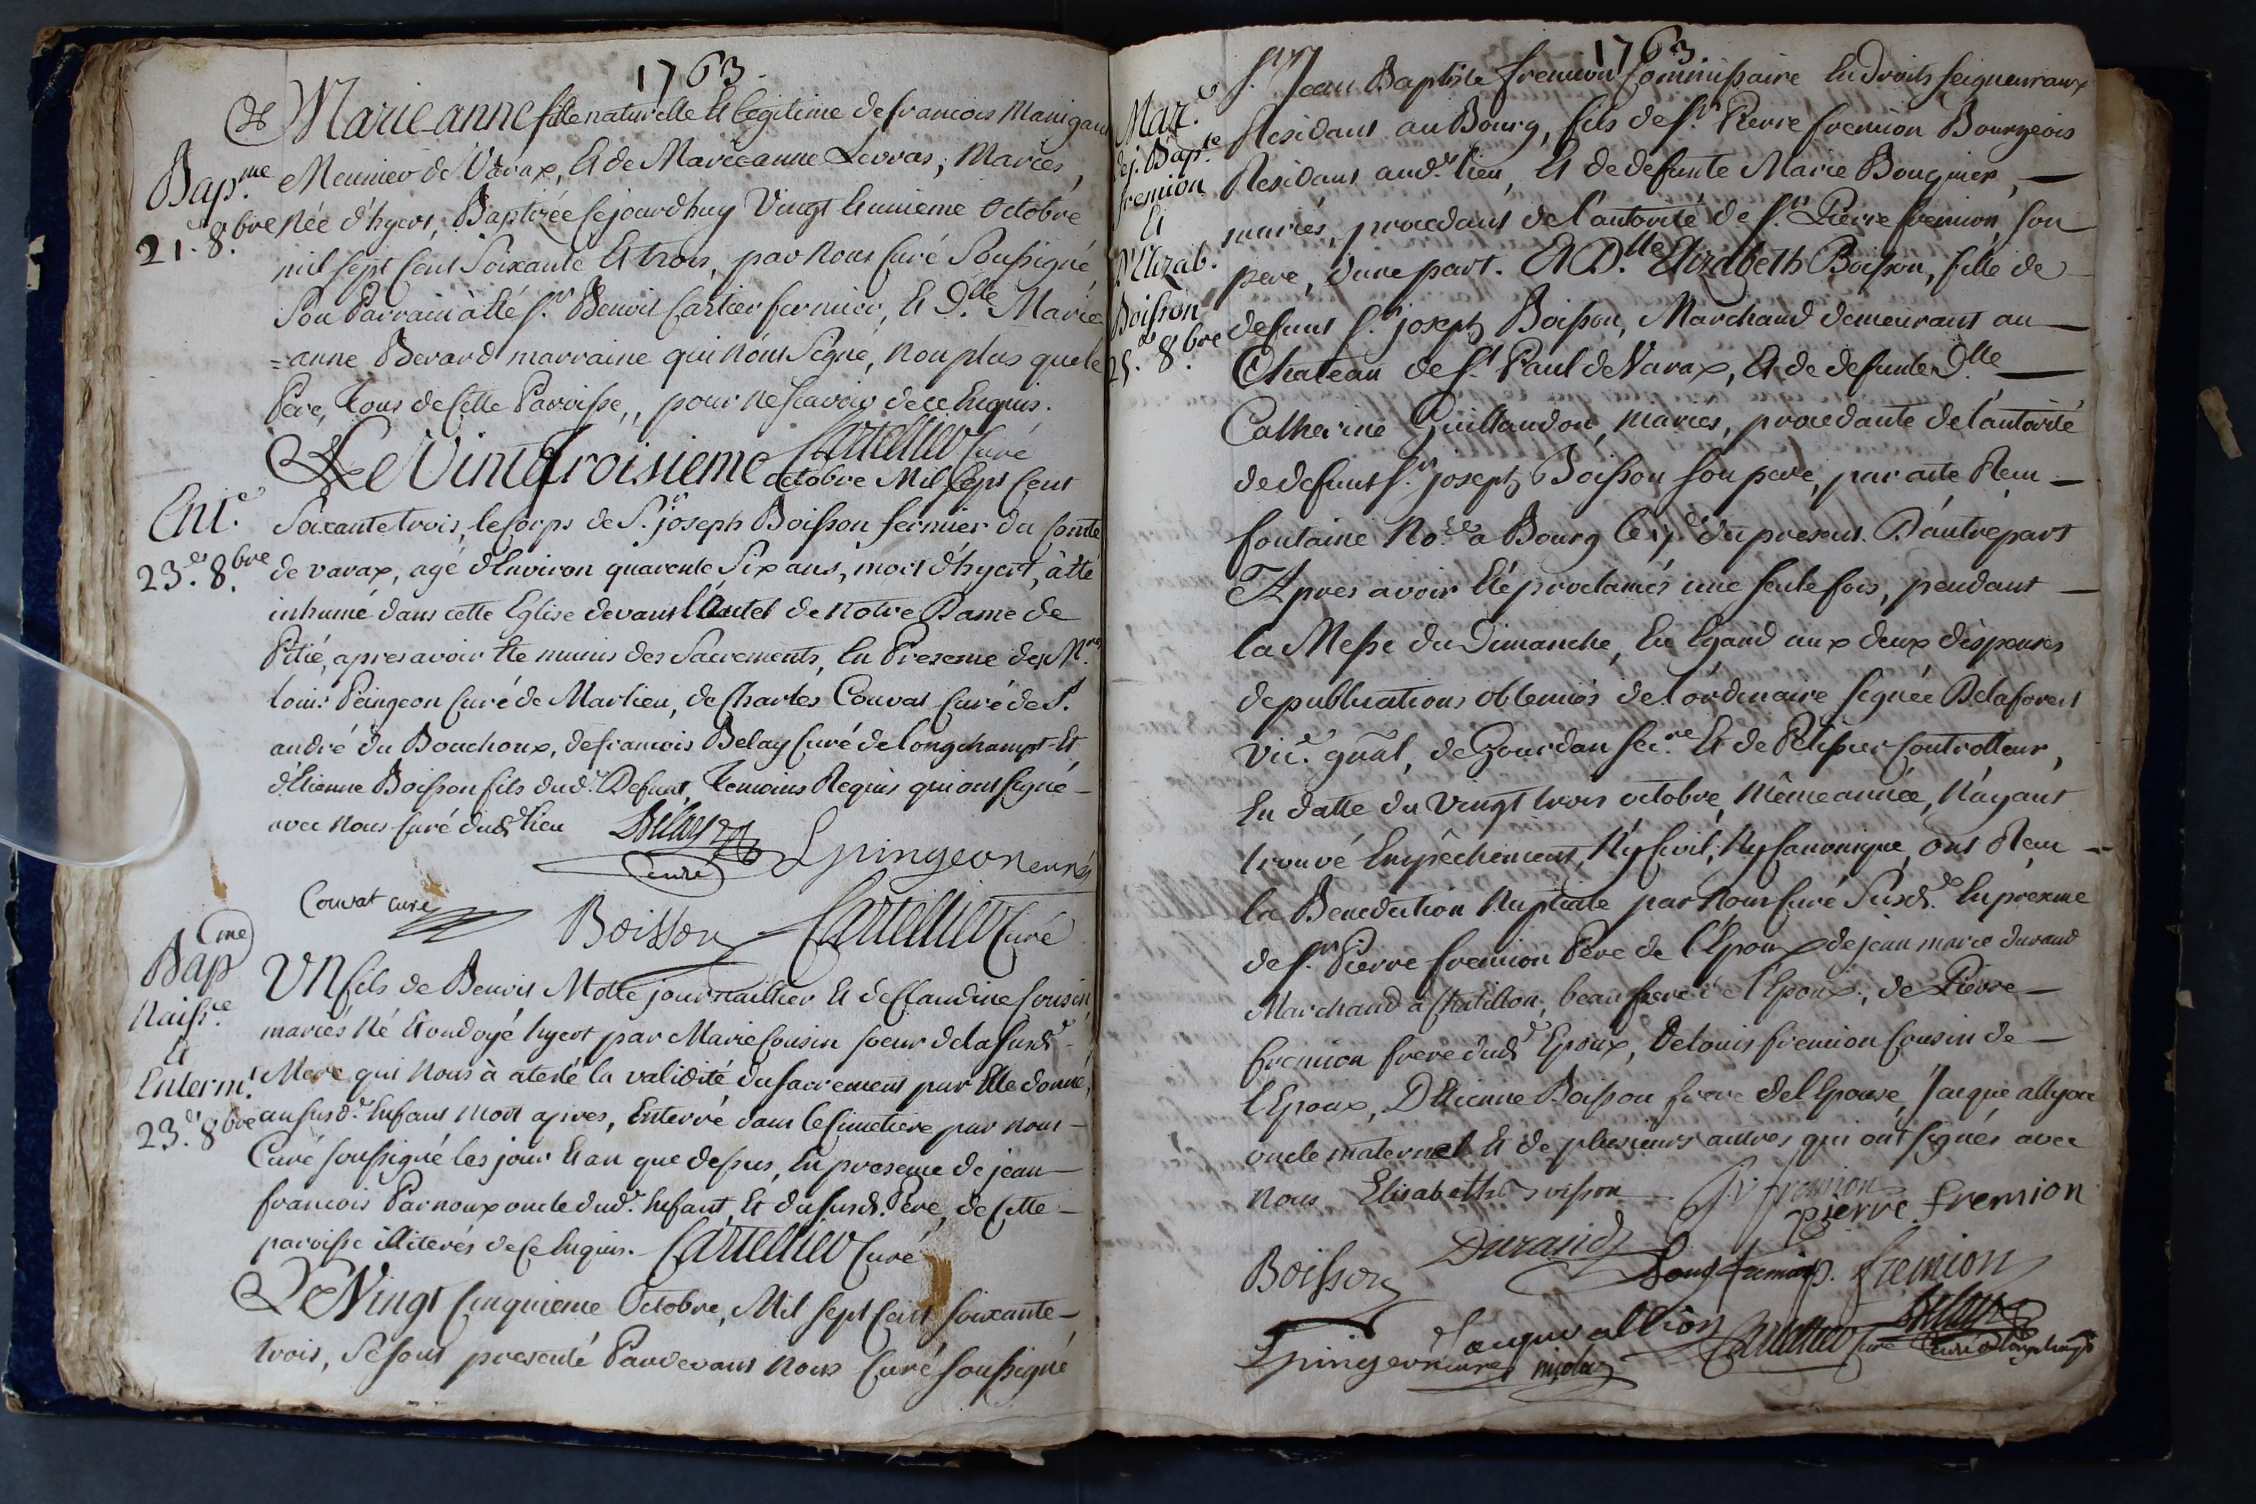 1763.
Marie-anne fille naturelle Et legitime de francois Manigand
Bap.me
21. 8.bre
Meunier de Varax, Et de Marieanne Levras, Mariés,
Née d'hyert, Baptizée Cejourdhuy Vingt Eunieme Octobre
mil sept Cent Soixante Et trois, par Nous Curé Soussigné
Son Parrain à Eté S.r Benoit Cartier fermier, Et D.lle Marie
=anne Berard marraine qui n'ont Signé, non plus que le
Pere, Tous de Cette Paroisse, pour ne Scavoir de ce Enquis.
Cartellier Curé
Ent.t
23.e 8.bre
Le Vint troisieme octobre Mil Sept Cent
Soixante trois, le Corps de S.r joseph Boisson fermier du Comté
de varax, agé d'Environ quarente Six ans, mort d'hyert, à Eté
inhumé dans cette Eglise devant l'Autel de Notre Dame de
Pitié, apres avoir Ete munis des Sacrements, En Presence de M.re
Louis Pingeon Curé de Marlieu, de Charles Couvat Curé de S.t
andré du Bouchoux, de francois Belay Curé de Longchampt Et
d'Etienne Boisson fils dud. Defunt, Temoins Requis qui ont Signé
avec Nous Curé dud. Lieu Belay
Curé
L pingeon curé
Couvat curé
Boisson
Cartellier Curé
Bapme
Naiss.ce
Et
Enterm.t
23.e 8bre
UN fils de Benoit Motte journaillier Et de Claudine Cousin,
mariés Né Et ondoyé hyert par Marie Cousin soeur de la susd.
Mere qui Nous à atesté la validité du sacrement par Elle donné,
au susd. Enfant mort apres, Enterré dans le Cimetiere par nous
Curé soussigné les jour Et an que dessus, En presence de jean
francois Parnoux oncle dud. Enfant, Et du susd. Pere, de Cette
paroisse illiterés de Ce Enquis. Cartellier Curé
Le Vingt Cinquieme Octobre, Mil sept Cent soixante
trois, Se sont presenté Pardevant Nous Curé soussigné
1763.
Mar.e
de j. Bap.te
fremion
Et
D.lle Elizab.
Boisson
25. 8.bre
S.r Jean Baptiste fremion Commissaire En droits seigneuriaux
Residant au Bourg, fils de S.r Pierre fremion Bourgeois
Residant aud. lieu, Et de defunte Marie Bouquier,
mariés, procedant de l'autorité de S.r Pierre fremion son
pere, d'une part. Et D.lle Elizabeth Boisson, fille de
defunt S.r joseph Boisson, Marchand demeurant au
Chateau de S.t Paul de Varax, Et de defunte D.lle
Catherine Guillaudon, mariés, procedante de l'autorité
de defunt S.r joseph Boisson son pere, par acte Recu
fontaine No.re a Bourg le 17.e du present. D'autre part
Apres avoir Eté proclamés une seule fois, pendant
la Messe du Dimanche, En Egard aux deux dispenses
de publications obtenues de l'ordinaire signée Delaforest
Vic. gñal, de Gourdan sec.re Et de Petisser Controlleur,
En datte du Vingt trois octobre, Même année, N'ayant
trouvé Empêchement, Ny Civil, Ny Canonique, ont Recu
la Benediction Nuptiale par Nous Curé Susd. En presence
de S.r Pierre fremion Pere de l'Epoux, de jean marie durand
Marchand à Chatillon, beau frere de l'Epoux, de Pierre
fremion frere dud. Epoux, De Louis fremion Cousin de
l'Epoux, D'Etienne Boisson frere de l'Epouse, Jacque allyon
oncle maternel Et de plusieurs autres qui ont signés avec
Nous. Elisabeth Boisson fremion
pierre fremion
Boisson Durand Louis fremion p. fremion
Jacque allion Cartellier Curé Belay
L pingeon curé nicolas Curé de Longchamp